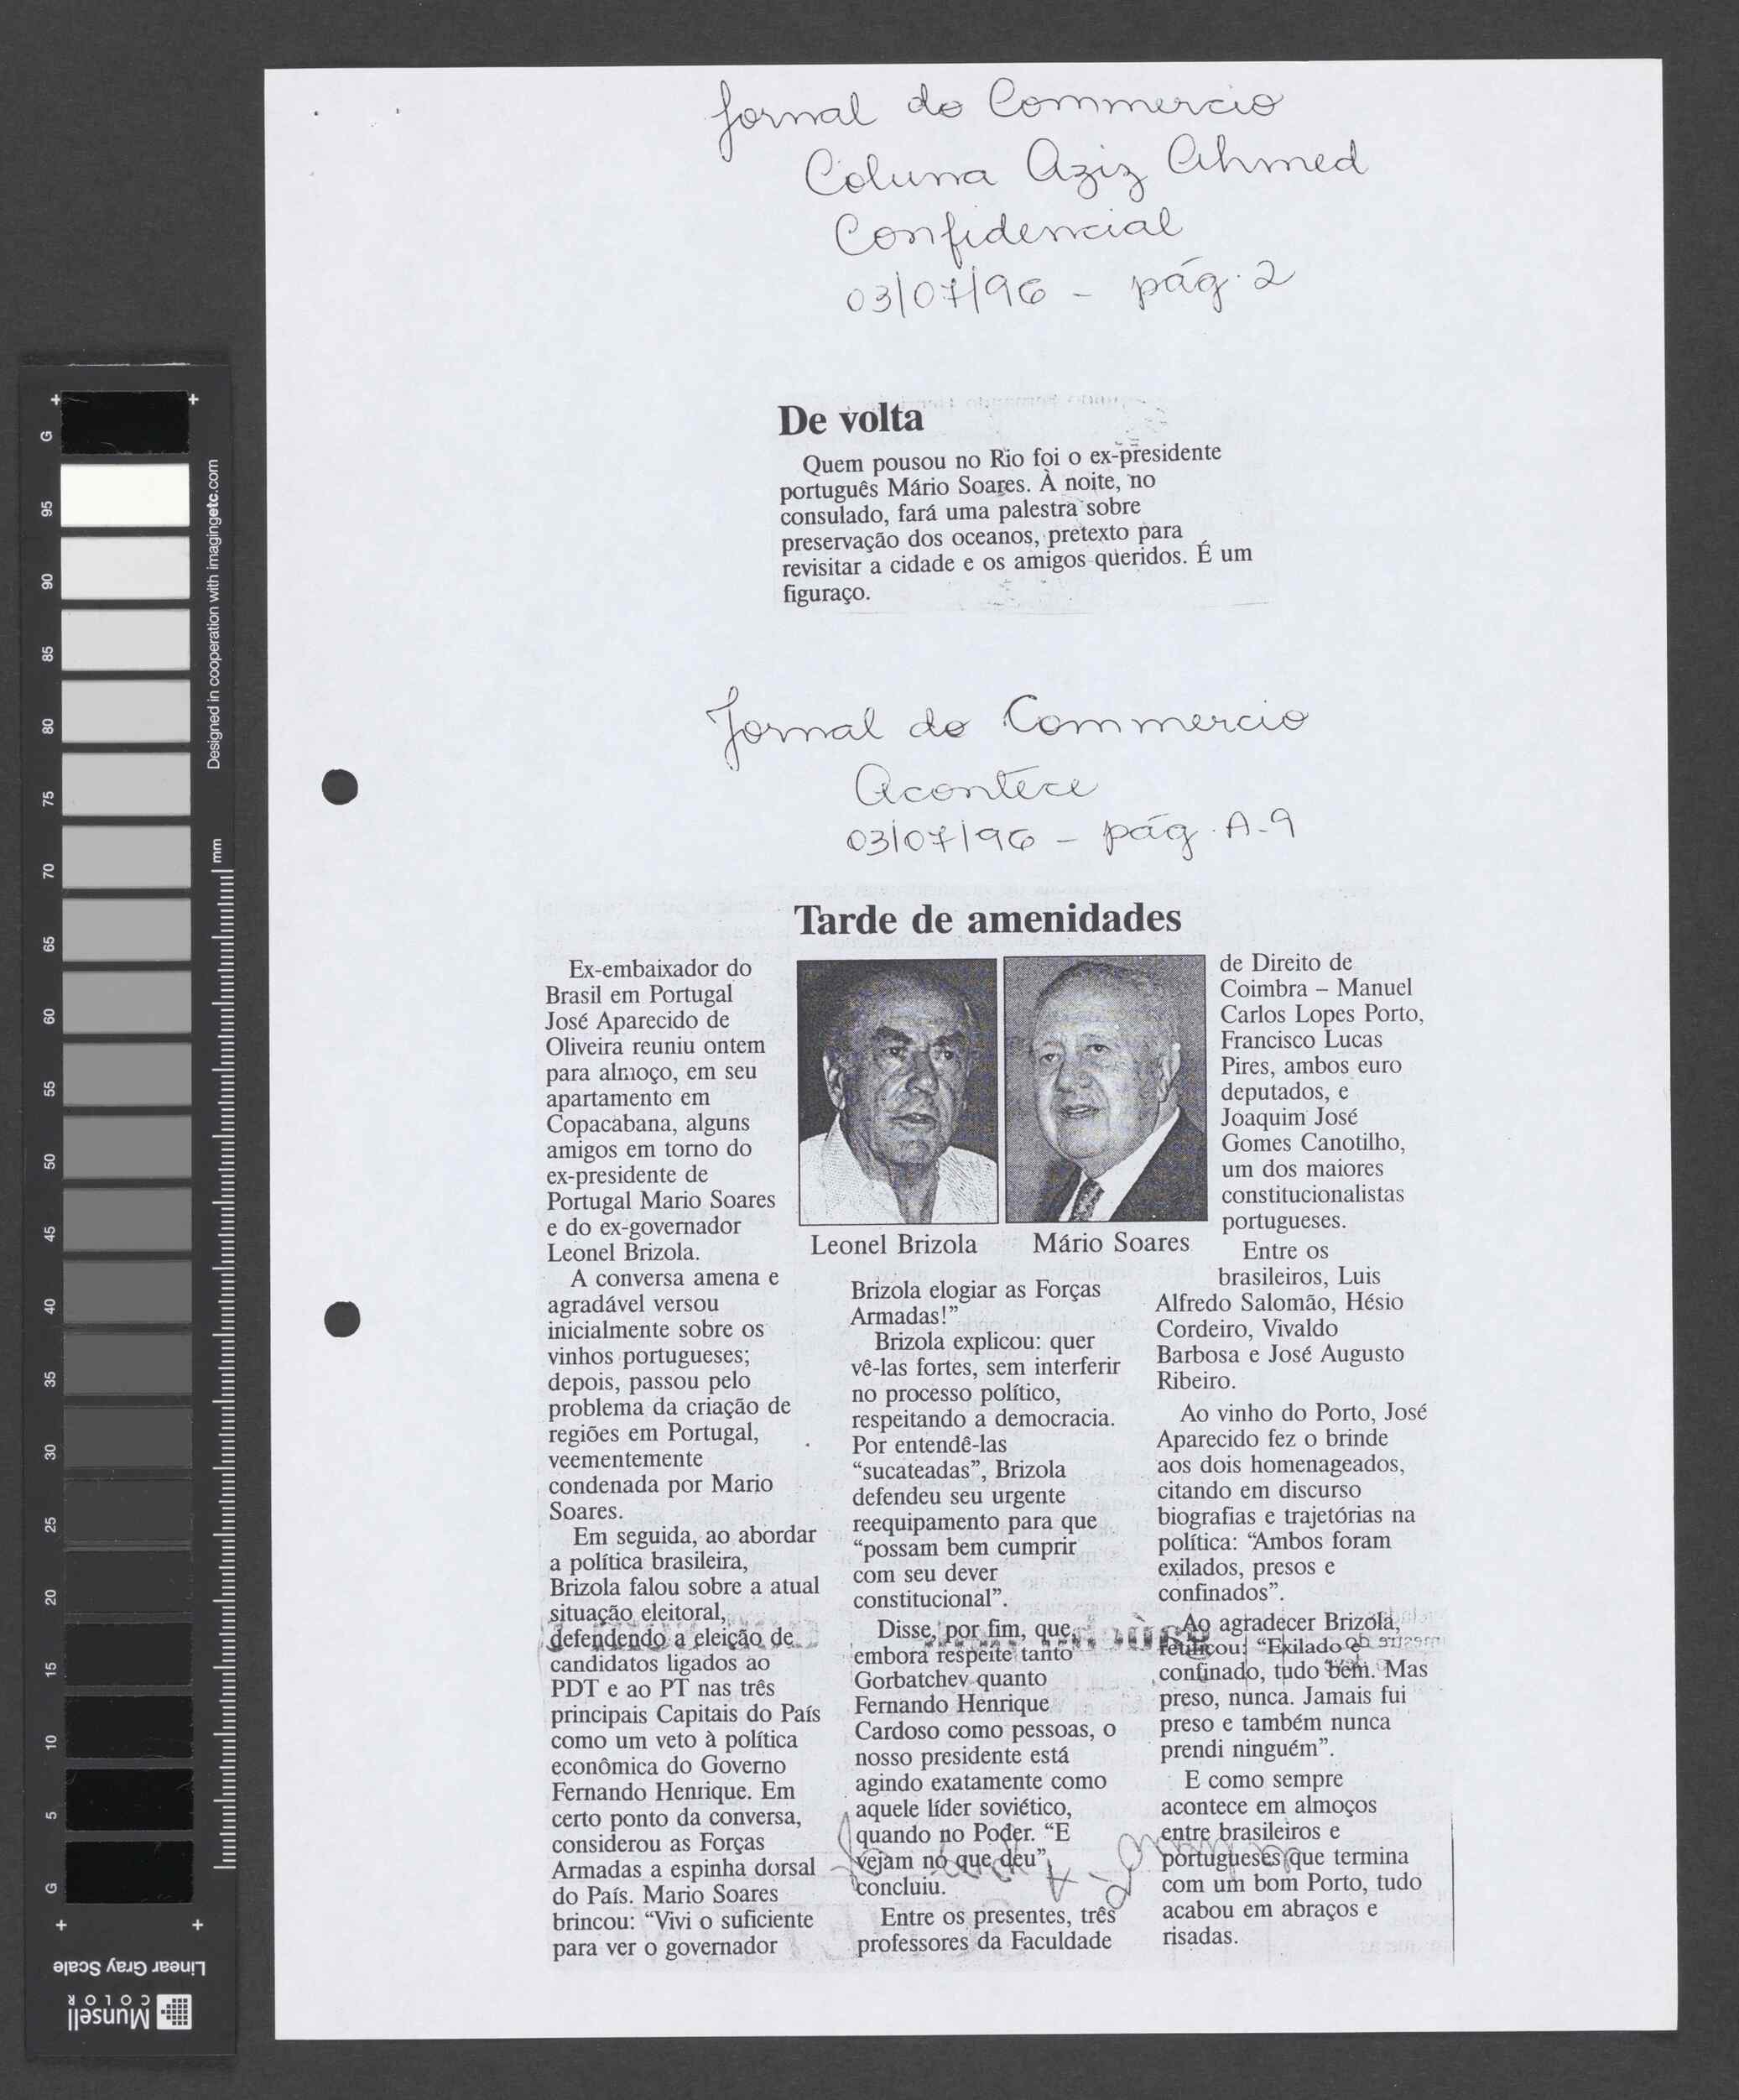 Jornal do Commercio
Coluna Aziz Ahmed
Confidencial
03/07/96 - pág. 2
De volta
Quem pousou no Rio foi o ex-presidente
português Mário Soares. À noite, no
consulado, fará uma palestra sobre
preservação dos oceanos, pretexto para
revisitar a cidade e os amigos queridos. É um
figuraço.
Jornal do Commercio
Acontece
03/07/96 - pág. A-9
Tarde de amenidades
Ex-embaixador do
Brasil em Portugal
José Aparecido de
Oliveira reuniu ontem
para almoço, em seu
apartamento em
Copacabana, alguns
amigos em torno do
ex-presidente de
Portugal Mario Soares
e do ex-governador
Leonel Brizola.
A conversa amena e
agradável versou
inicialmente sobre os
vinhos portugueses;
depois, passou pelo
problema da criação de
regiões em Portugal,
veementemente
condenada por Mario
Soares.
Em seguida, ao abordar
a política brasileira,
Brizola falou sobre a atual
situação eleitoral,
defendendo a eleição de
candidatos ligados ao
PDT e ao PT nas três
principais Capitais do País
como um veto à política
econômica do Governo
Fernando Henrique. Em
certo ponto da conversa,
considerou as Forças
Armadas a espinha dorsal
do País. Mario Soares
brincou: “Vivi o suficiente
para ver o governador
Leonel Brizola
Mário Soares
Brizola elogiar as Forças
Armadas!”
Brizola explicou: quer
vê-las fortes, sem interferir
no processo político,
respeitando a democracia.
Por entendê-las
“sucateadas”, Brizola
defendeu seu urgente
reequipamento para que
“possam bem cumprir
com seu dever
constitucional”.
Disse, por fim, que,
embora respeite tanto
Gorbatchev quanto
Fernando Henrique
Cardoso como pessoas, o
nosso presidente está
agindo exatamente como
aquele líder soviético,
quando no Poder. “E
vejam no que deu”,
concluiu.
Entre os presentes, três
professores da Faculdade
de Direito de
Coimbra – Manuel
Carlos Lopes Porto,
Francisco Lucas
Pires, ambos euro
deputados, e
Joaquim José
Gomes Canotilho,
um dos maiores
constitucionalistas
portugueses.
Entre os
brasileiros, Luis
Alfredo Salomão, Hésio
Cordeiro, Vivaldo
Barbosa e José Augusto
Ribeiro.
Ao vinho do Porto, José
Aparecido fez o brinde
aos dois homenageados,
citando em discurso
biografias e trajetórias na
política: “Ambos foram
exilados, presos e
confinados”.
Ao agradecer Brizola,
retificou: “Exilado
confinado, tudo bem. Mas
preso, nunca. Jamais fui
preso e também nunca
prendi ninguém”.
E como sempre
acontece em almoços
entre brasileiros e
portugueses que termina
com um bom Porto, tudo
acabou em abraços e
risadas.
G
95
90
85
80
75
70
65
60
55
50
45
40
35
30
25
20
15
10
5
G
Designed in cooperation with imagingetc.com
mm
Linear Gray Scale
Munsell
COLOR